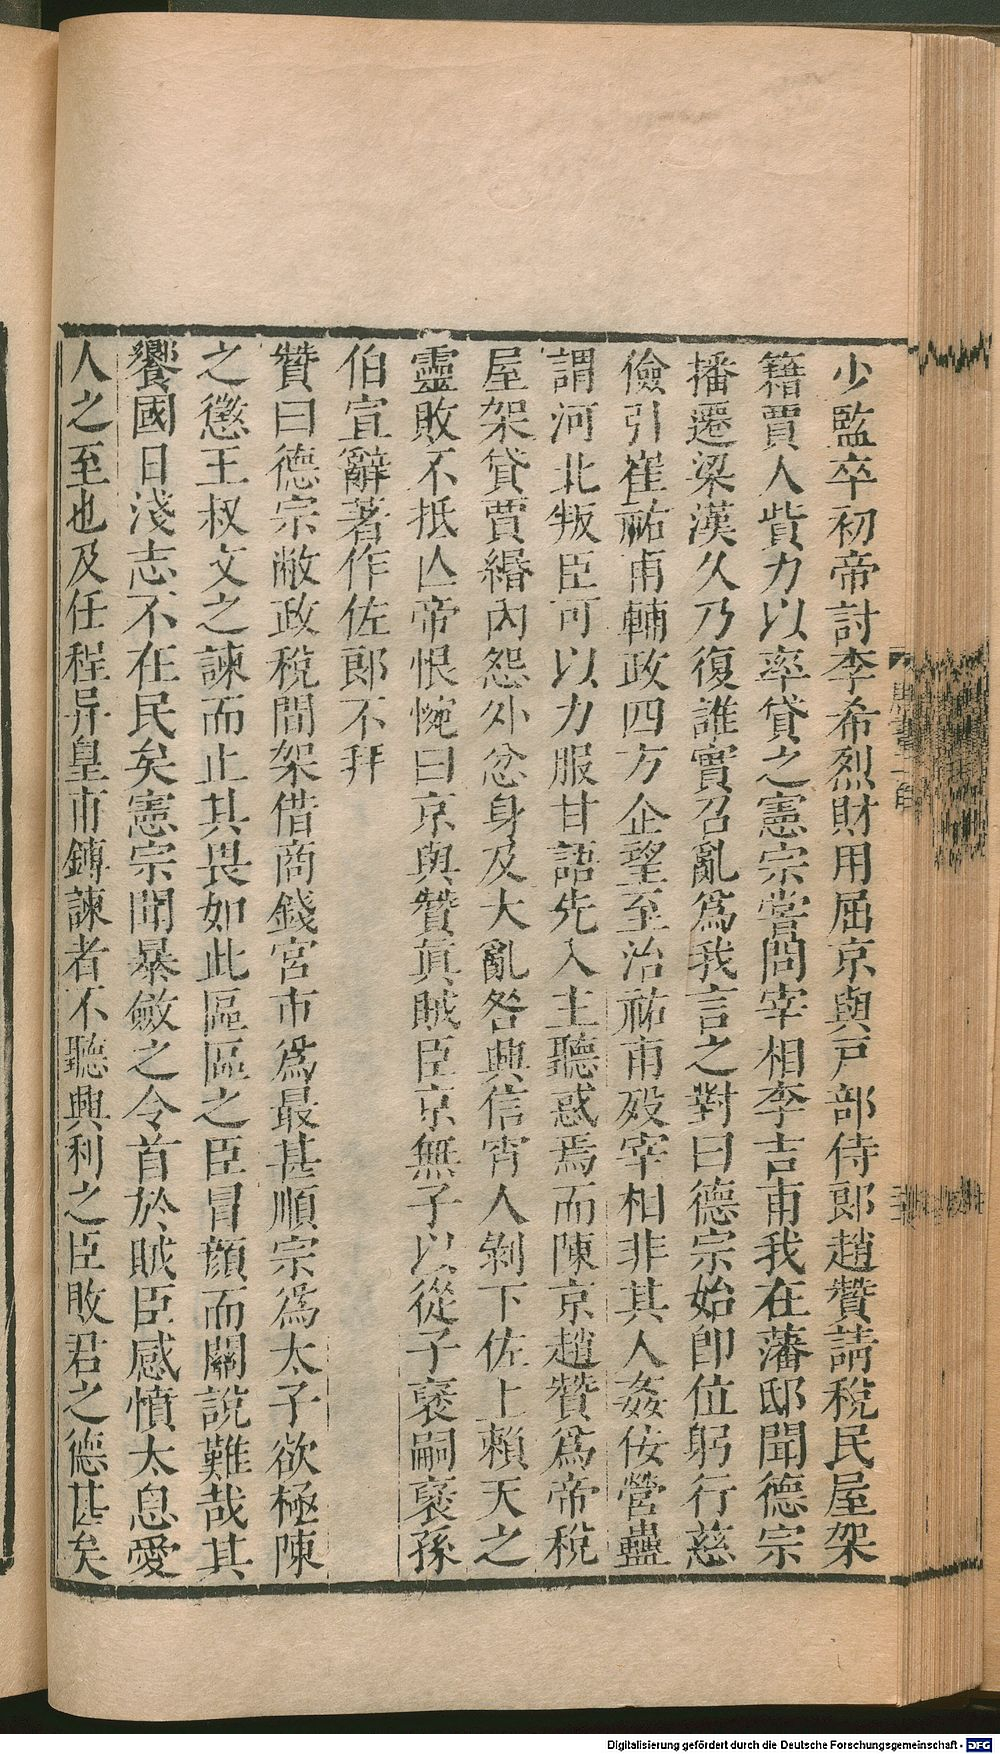 少監卒初帝討李希烈財用屈京與戸部侍郎趙贊請稅民屋架
籍賈人貲力以率貸之憲宗嘗問宰相李吉甫我在藩邸聞德宗
播遷梁漢久乃復誰實召亂爲我言之對曰德宗始卽位躬行慈
儉引崔祐甫輔政四方企望至治祐甫歿宰相非其人姦佞營蠱
謂河北叛臣可以力服甘語先入主聽惑焉而陳京趙贊爲帝稅
屋架貸賈緡內怨外忿身及大亂咎興信宵人剝下佐上賴天之
靈敗不抵亾帝恨惋曰京與贊真賊臣京無子以從子褒嗣褒孫
伯宣辭著作佐郎不拜
贊曰德宗敝政稅間架借商錢宮市爲最甚順宗爲太子欲極陳
之懲王叔文之諫而止其畏如此區區之臣冒顏而關說難哉其
饗國日淺志不在民矣憲宗聞暴斂之令首於賊臣感憤太息愛
人之至也及任程异皇甫鎛諫者不聽興利之臣敗君之德甚矣
Digitalisierung gefördert durch die Deutsche Forschungsgemeinschaft - DFG